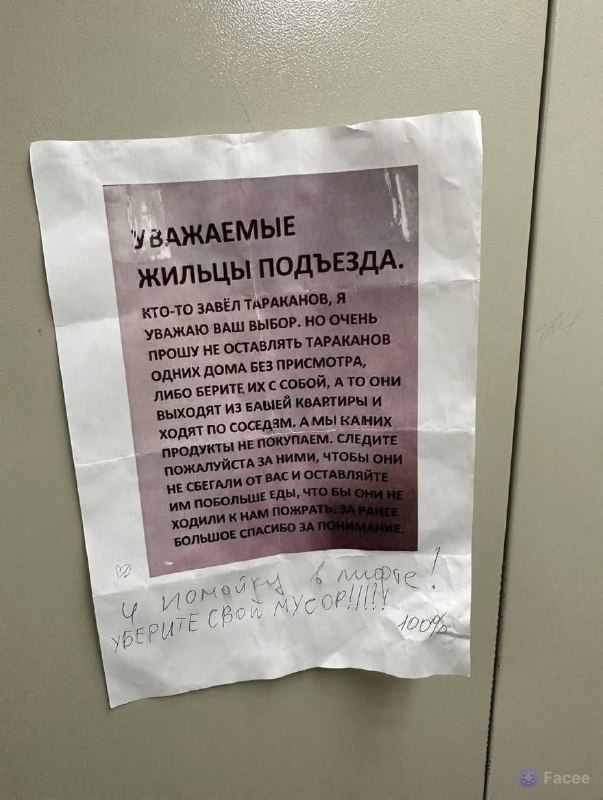 УВАЖАЕМЫЕ
ЖИЛЬЦЫ ПОДЪЕЗДА.
КТО-ТО ЗАВЁЛ ТАРАКАНОВ, Я
УВАЖАЮ ВАШ ВЫБОР. НО ОЧЕНЬ
ПРОШУ НЕ ОСТАВЛЯТЬ ТАРАКАНОВ
ОДНИХ ДОМА БЕЗ ПРИСМОТРА,
ЛИБО БЕРИТЕ ИХ С СОБОЙ, А ТО ОНИ
ВЫХОДЯТ ИЗ ВАШЕЙ КВАРТИРЫ И
ХОДЯТ ПО СОСЕДЯМ. А МЫ НА НИХ
ПРОДУКТЫ НЕ ПОКУПАЕМ. СЛЕДИТЕ
ПОЖАЛУЙСТА ЗА НИМИ, ЧТОБЫ ОНИ
НЕ СБЕГАЛИ ОТ ВАС И ОСТАВЛЯЙТЕ
ИМ ПОБОЛЬШЕ ЕДЫ, ЧТО БЫ ОНИ НЕ
ХОДИЛИ К НАМ ПОЖРАТЬ. ЗА РАНЕЕ
БОЛЬШОЕ СПАСИБО ЗА ПОНИМАНИЕ.
И помойку в лифте!
УБЕРИТЕ СВОЙ МУСОР!!!!!
100%
Facee